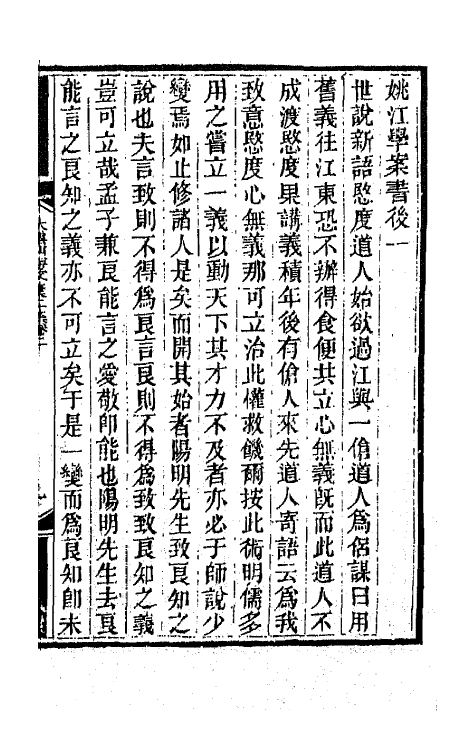 姚江學案書後一
世說新語愍度道人始欲過江與一傖道人爲侶謀曰用
舊義往江東恐不辦得食便共立心無義旣而此道人不
成渡愍度果講義積年後有傖人來先道人寄語云爲我
致意愍度心無義那可立治此權救饑爾按此術明儒多
用之嘗立一義以動天下其才力不及者亦必于師說少
變焉如止修諸人是矣而開其始者陽明先生致良知之
說也夫言致則不得爲良言良則不得爲致致良知之義
豈可立哉孟子兼良能言之愛敬卽能也陽明先生去良
能言之良知之義亦不可立矣于是一變而爲良知卽未
大雲山房文稾二集卷一